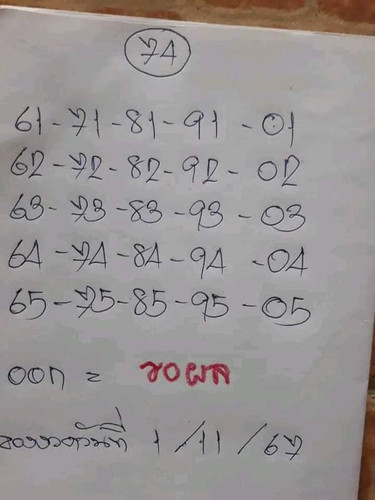 74
61-71-81-91-01
62-72-82-92-02
63-73-83-93-03
64-74-84-94-04
65-75-85-95-05
ออก = ขอผล
1/11/67